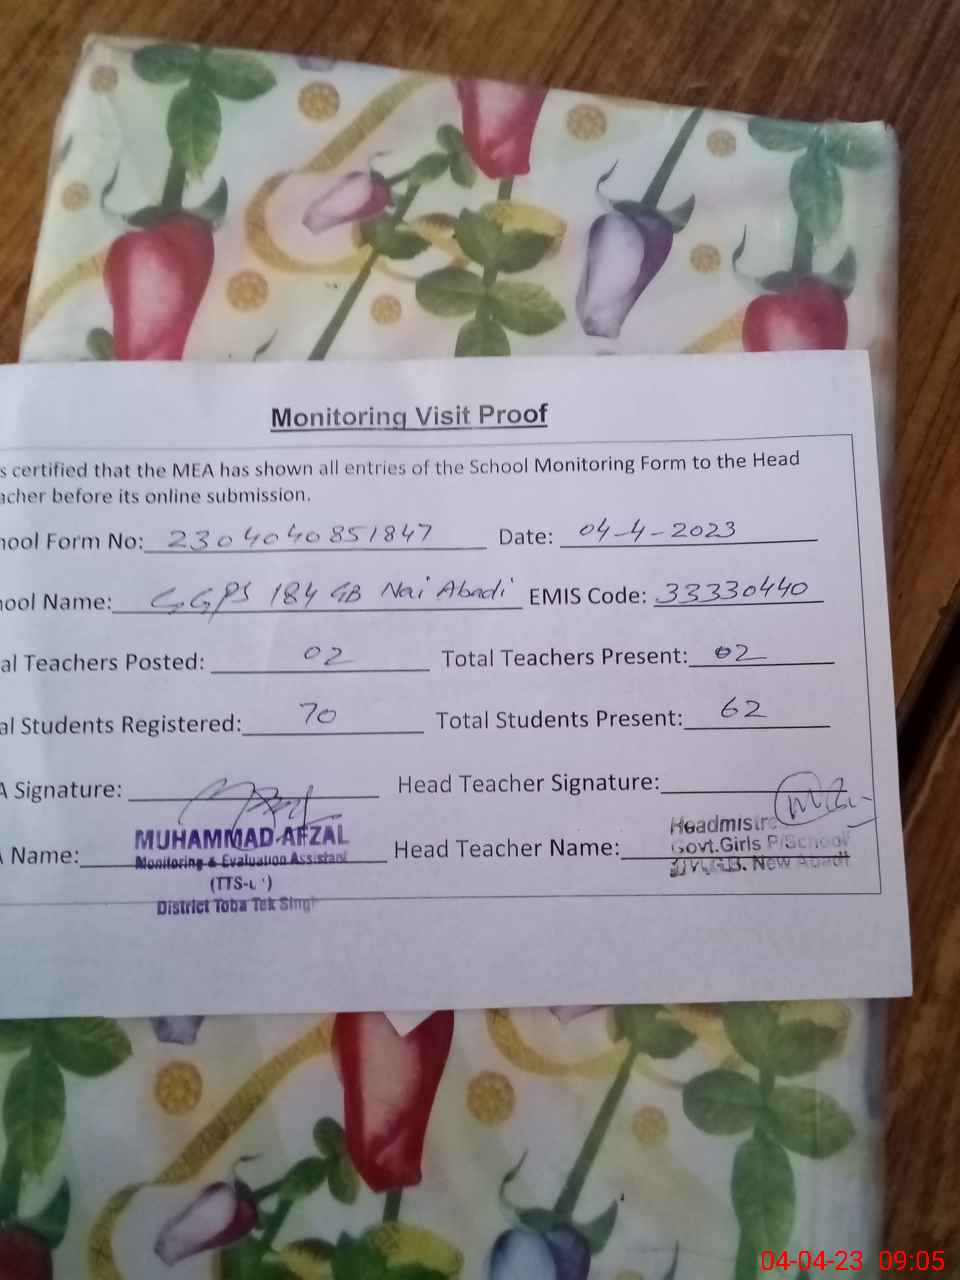 Monitoring Visit Proof
s certified that the MEA has shown all entries of the School Monitoring Form to the Head
acher before its online submission.
hool Form No: 2304040851847 Date: 04-4-2023
hool Name: GGPS 184 GB Nai Abadi EMIS Code: 33330440
al Teachers Posted: 02 Total Teachers Present: 02
al Students Registered: 70 Total Students Present: 62
A Signature: Head Teacher Signature:
Name: MUHAMMAD AFZAL Head Teacher Name: Headmistre
Monitoring & Evaluation Assistant Govt.Girls P/School
(TTS- ) G.B. New Abadi
District Toba Tek Singh
04-04-23 09:05